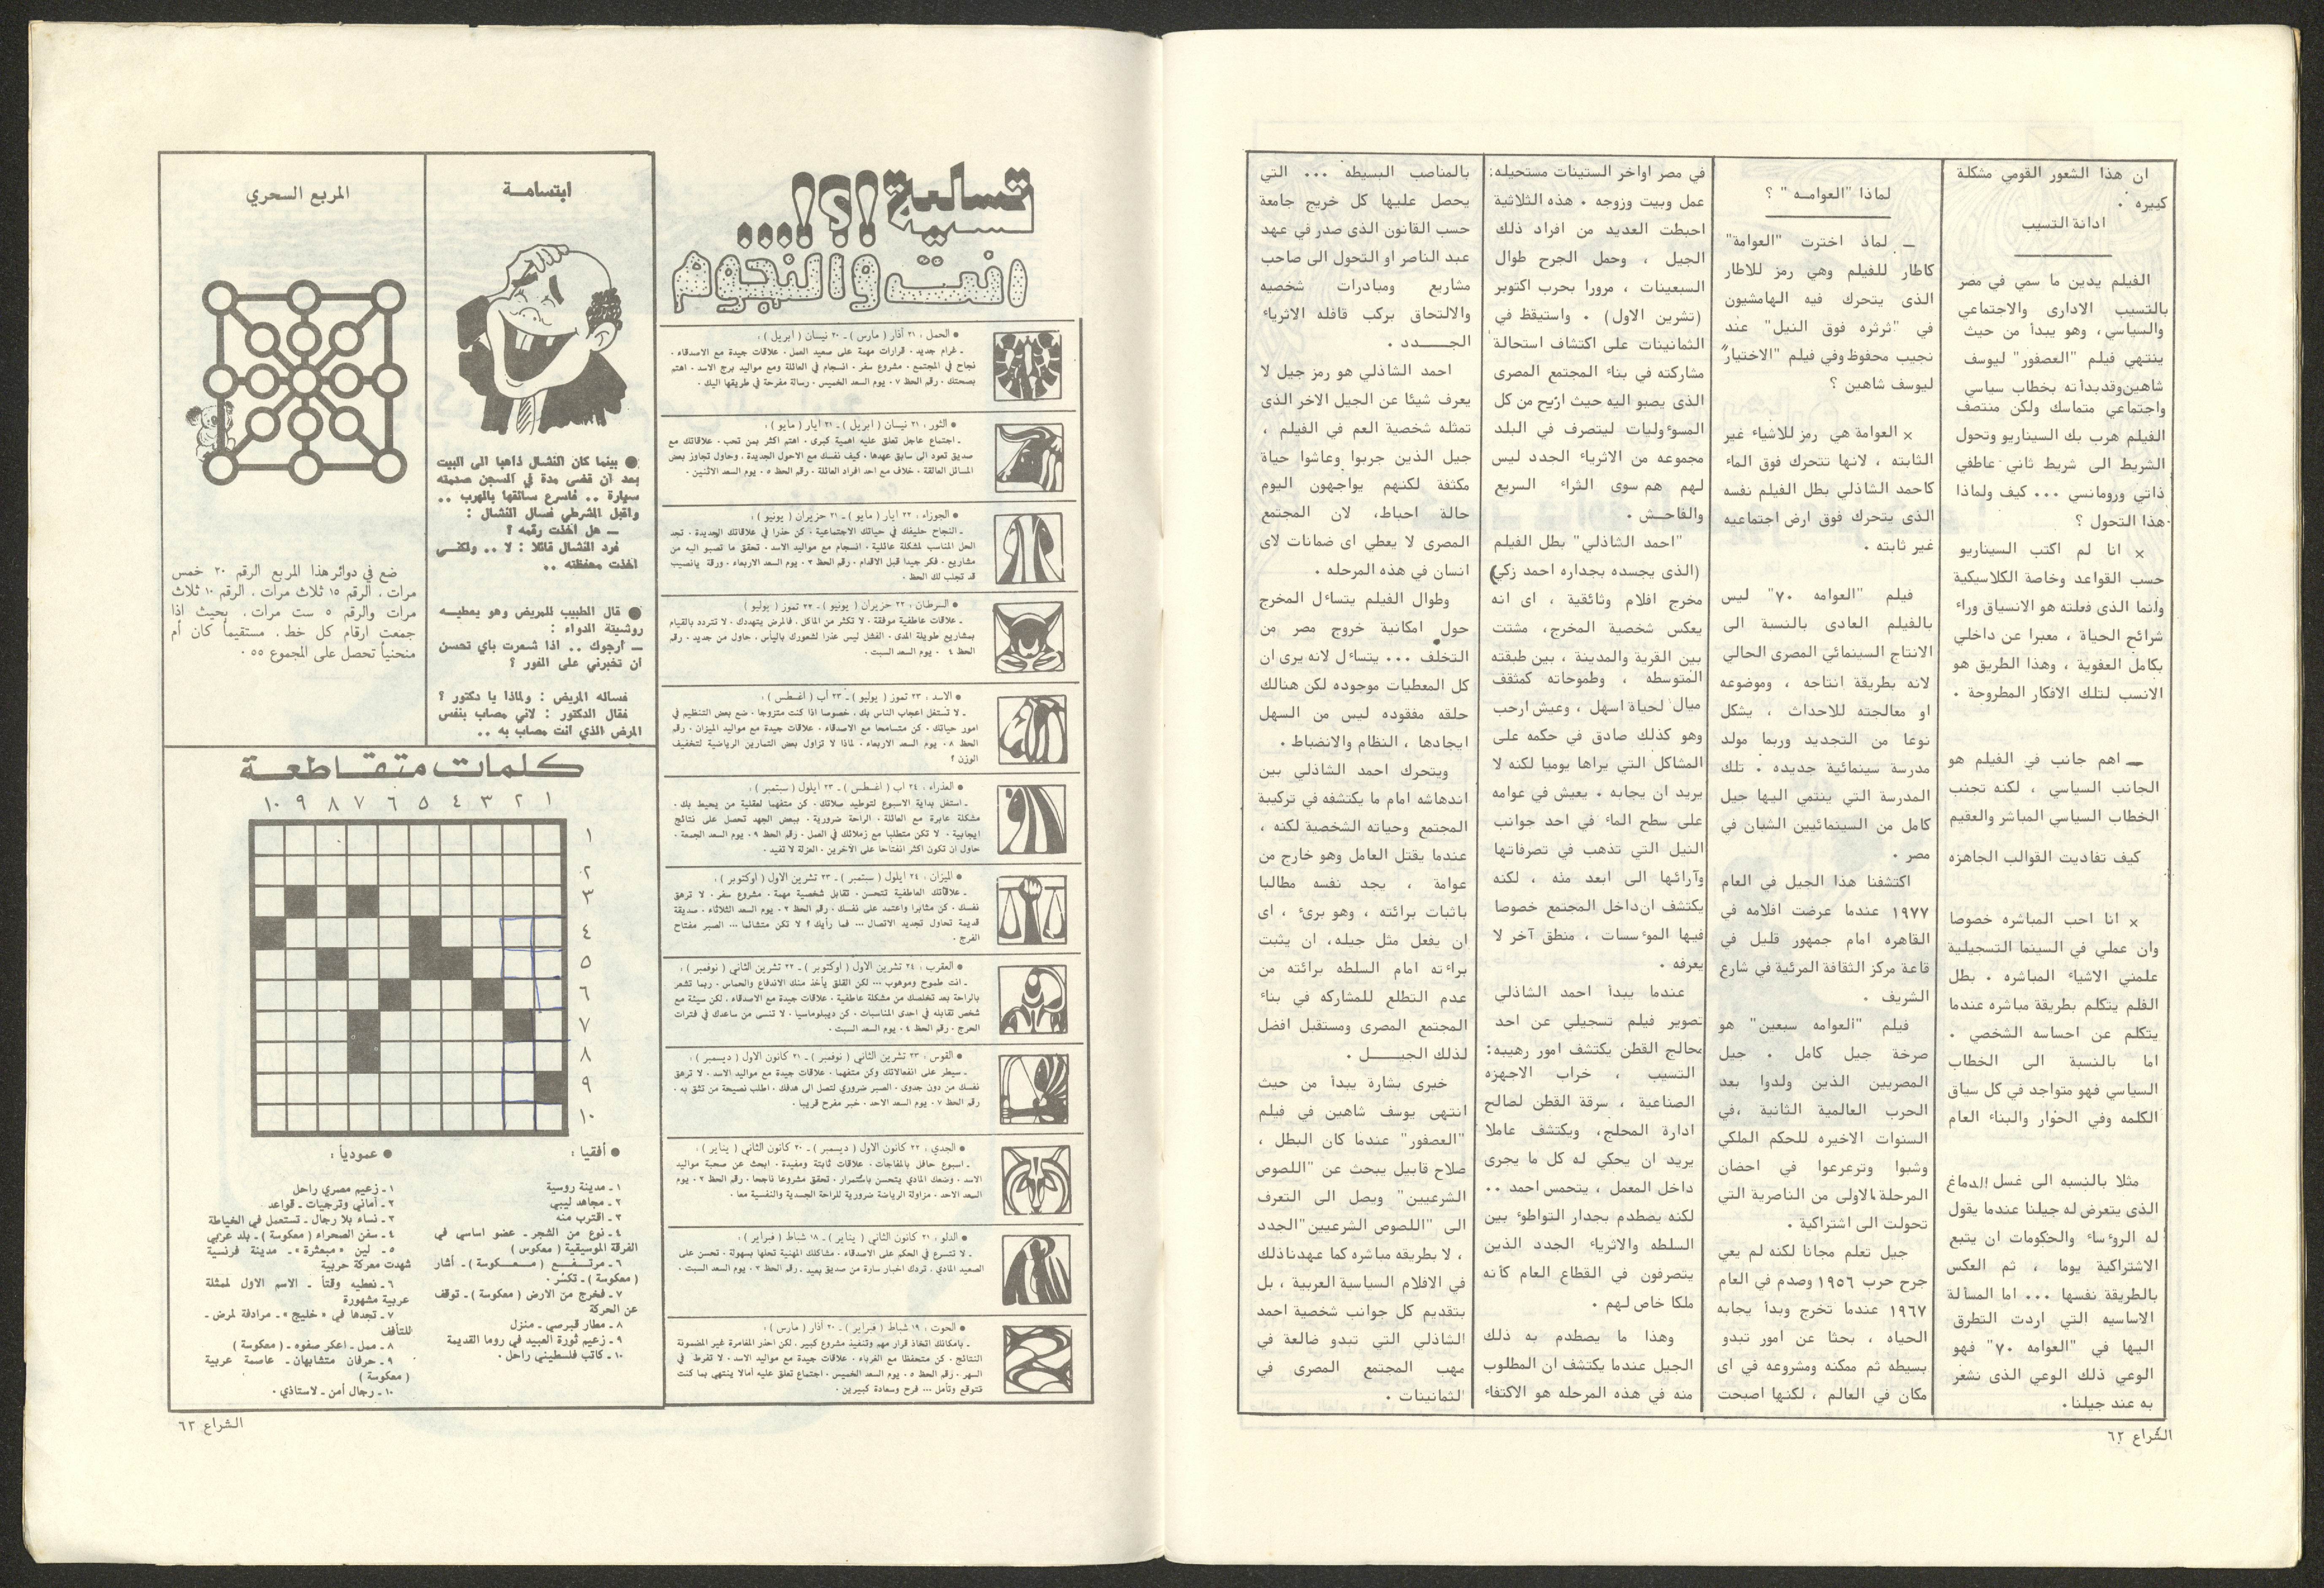 ان هذا الشعور القومي مشكلة
كبيره .
ادانة التسيب
الفيلم يدين ما سمي في مصر
بالتسيب الادارى والاجتماعي
والسياسي، وهو يبدأ من حيث
ينتهي فيلم "العصفور" ليوسف
شاهين وقد بدأته بخطاب سياسي
واجتماعي متماسك ولكن منتصف
الفيلم هرب بك السيناريو وتحول
الشريط الى شريط ثاني عاطفي
ذاتي ورومانسي ... كيف ولماذا
هذا التحول ؟
× انا لم اكتب السيناريو
حسب القواعد وخاصة الكلاسيكية
وانما الذى فعلته هو الانسياق وراء
شرائح الحياة ، معبرا عن داخلي
بكامل العفوية ، وهذا الطريق هو
الانسب لتلك الافكار المطروحة .
ـ اهم جانب في الفيلم هو
الجانب السياسي ، لكنه تجنب
الخطاب السياسي المباشر والعقيم
كيف تفاديت القوالب الجاهزه
× انا احب المباشره خصوصا
وان عملي في السينما التسجيلية
علمني الاشياء المباشره . بطل
الفلم يتكلم بطريقة مباشره عندما
يتكلم عن احساسه الشخصي .
اما بالنسبة الى الخطاب
السياسي فهو متواجد في كل سياق
الكلمه وفي الحوار والبناء العام
مثلا بالنسبه الى غسل الدماغ
الذى يتعرض له جيلنا عندما يقول
له الروءساء والحكومات ان يتبع
الاشتراكية يوما ، ثم العكس
بالطريقة نفسها ... اما المسألة
الاساسيه التي اردت التطرق
اليها في "العوامه ٧٠" فهو
الوعي ذلك الوعي الذى نشعر
به عند جيلنا.
لماذا "العوامــه" ؟
ـ لماذ اخترت "العوامة"
كاطار للفيلم وهي رمز للاطار
الذى يتحرك فيه الهامشيون
في "ثرثره فوق النيل" عند
نجيب محفوظ وفي فيلم "الاختيار"
ليوسف شاهين ؟
× العوامة هي رمز للاشياء غير
الثابته ، لانها تتحرك فوق الماء
كاحمد الشاذلي بطل الفيلم نفسه
الذى يتحرك فوق ارض اجتماعيه
غير ثابته .
فيلم "العوامه ٧٠" ليس
بالفيلم العادى بالنسبة الى
الانتاج السينمائي المصرى الحالي
لانه بطريقة انتاجه ، وموضوعه
او معالجته للاحداث ، يشكل
نوعا من التجديد وربما مولد
مدرسة سينمائية جديده . تلك
المدرسة التي ينتمي اليها جيل
كامل من السينمائيين الشبان في
مصر .
اكتشفنا هذا الجيل في العام
١٩٧٧ عندما عرضت افلامه في
القاهره امام جمهور قليل في
قاعة مركز الثقافة المرئية في شارع
الشريف .
فيلم "العوامه سبعين" هو
صرخة جيل كامل . جيل
المصريين الذين ولدوا بعد
الحرب العالمية الثانية ،في
السنوات الاخيره للحكم الملكي
وشبوا وترعرعوا في احضان
المرحلة الاولى من الناصرية التي
تحولت الى اشتراكية .
جيل تعلم مجانا لكنه لم يعي
جرح حرب ١٩٥٦ وصدم في العام
١٩٦٧ عندما تخرج وبدأ يجابه
الحياه ، بحثا عن امور تبدو
بسيطه ثم ممكنه ومشروعه في اى
مكان في العالم ، لكنها اصبحت
في مصر اواخر الستينات مستحيله:
عمل وبيت وزوجه . هذه الثلاثية
احبطت العديد من افراد ذلك
الجيل ، وحمل الجرح طوال
السبعينات ، مرورا بحرب اكتوبر
(تشرين الاول) . واستيقظ في
الثمانينات على اكتشاف استحالة
مشاركته في بناء المجتمع المصرى
الذى يصبو اليه حيث ازيح من كل
المسوءوليات ليتصرف في البلد
مجموعه من الاثرياء الجدد ليس
لهم هم سوى الثراء السريع
والفاحـش .
"احمد الشاذلي" بطل الفيلم
(الذى يجسده بجداره احمد زكي)
مخرج افلام وثائقية ، اى انه
يعكس شخصية المخرج، مشتت
بين القرية والمدينة ، بين طبقته
المتوسطه ، وطموحاته كمثقف
ميال لحياة اسهل ، وعيش ارحب
وهو كذلك صادق في حكمه على
المشاكل التي يراها يوميا لكنه لا
يريد ان يجابه . يعيش في عوامه
على سطح الماء في احد جوانب
النيل التي تذهب في تصرفاتها
وآرائها الى ابعد منه ، لكنه
يكتشف ان داخل المجتمع خصوصا
فيها الموءسسات ، منطق آخر لا
يعرفه .
عندما يبدأ احمد الشاذلي
تصوير فيلم تسجيلي عن احد
محالج القطن يكتشف امور رهيبه:
التسيب ، خراب الاجهزه
الصناعية ، سرقة القطن لصالح
ادارة المحلج، ويكتشف عاملا
يريد ان يحكي له كل ما يجرى
داخل المعمل ، يتحمس احمد ..
لكنه يصطدم بجدار التواطوء بين
السلطه والاثرياء الجدد الذين
يتصرفون في القطاع العام كأنه
ملكا خاص لهم .
وهذا ما يصطدم به ذلك
الجيل عندما يكتشف ان المطلوب
منه في هذه المرحله هو الاكتفاء
بالمناصب البسيطه ... التي
يحصل عليها كل خريج جامعة
حسب القانون الذى صدر في عهد
عبد الناصر او التحول الى صاحب
مشاريع ومبادرات شخصيه
والالتحاق بركب قافله الاثرياء
الجـــدد .
احمد الشاذلي هو رمز جيل لا
يعرف شيئا عن الجيل الاخر الذى
تمثله شخصية العم في الفيلم ،
جيل الذين جربوا وعاشوا حياة
مكثفة لكنهم يواجهون اليوم
حالة احباط، لان المجتمع
المصرى لا يعطي اى ضمانات لاى
انسان في هذه المرحله .
وطوال الفيلم يتساءل المخرج
حول امكانية خروج مصر من
التخلف ... يتساءل لانه يرى ان
كل المعطيات موجوده لكن هنالك
حلقه مفقوده ليس من السهل
ايجادها ، النظام والانضباط .
ويتحرك احمد الشاذلي بين
اندهاشه امام ما يكتشفه في تركيبة
المجتمع وحياته الشخصية لكنه ،
عندما يقتل العامل وهو خارج من
عوامة ، يجد نفسه مطالبا
باثبات برائته ، وهو برىء ، اى
ان يفعل مثل جيله، ان يثبت
براءته امام السلطه برائته من
عدم التطلع للمشاركه في بناء
المجتمع المصرى ومستقبل افضل
لذلك الجيـــل .
خيرى بشارة يبدأ من حيث
انتهى يوسف شاهين في فيلم
"العصفور" عندما كان البطل ،
صلاح قابيل يبحث عن "اللصوص
الشرعيين" ويصل الى التعرف
الى "اللصوص الشرعيين"الجدد
، لا بطريقه مباشره كما عهدنا ذلك
في الافلام السياسية العربية ، بل
بتقديم كل جوانب شخصية احمد
الشاذلي التي تبدو ضالعة في
مهب المجتمع المصرى في
الثمانينات .
الشراع ٦٢
تسلية !؟!...
انت والنجوم
● الحمل : ٢١ آذار ( مارس ) ـ ٢٠ نيسان ( ابريل ) :
ـ غرام جديد . قرارات مهمة على صعيد العمل . علاقات جيدة مع الاصدقاء .
نجاح في المجتمع . مشروع سفر . انسجام في العائلة ومع مواليد برج الاسد . اهتم
بصحتك . رقم الحظ ٧ . يوم السعد الخميس . رسالة مفرحة في طريقها اليك .
● الثور : ٢١ نيسان ( ابريل ) ـ ٢١ ايار ( مايو ) :
ـ اجتماع عاجل تعلق عليه اهمية كبرى . اهتم اكثر بمن تحب . علاقاتك مع
صديق تعود الى سابق عهدها . كيف نفسك مع الاحول الجديدة . وحاول تجاوز بعض
المسائل العالقة . خلاف مع احد افراد العائلة . رقم الحظ ٥ . يوم السعد الاثنين .
● الجوزاء : ٢٢ ايار ( مايو ) ـ ٢١ حزيران ( يونيو ) :
ـ النجاح حليفك في حياتك الاجتماعية . كن حذرا في علاقاتك الجديدة . تجد
الحل المناسب لمشكلة عائلية . انسجام مع مواليد الاسد . تحقق ما تصبو اليه من
مشاريع . فكر جيدا قبل الاقدام . رقم الحظ ٢ . يوم السعد الاربعاء . ورقة يانصيب
قد تجلب لك الحظ .
● السرطان : ٢٢ حزيران ( يونيو ) ـ ٢٢ تموز ( يوليو )
ـ علاقات عاطفية موفقة . لا تكثر من الماكل . فالمرض يتهددك . لا تتردد بالقيام
بمشاريع طويلة المدى . الفشل ليس عذرا لشعورك بالياس . حاول من جديد . رقم
الحظ ٤ . يوم السعد السبت .
● الاسد : ٢٣ تموز ( يوليو ) ـ ٢٣ آب ( اغسطس ) :
ـ لا تستغل اعجاب الناس بك . خصوصا اذا كنت متزوجا . ضع بعض التنظيم في
امور حياتك . كن متسامحا مع الاصدقاء . علاقات جيدة مع مواليد الميزان . رقم
الحظ ٨ . يوم السعد الاربعاء . لماذا لا تزاول بعض التمارين الرياضية لتخفيف
الوزن ؟
● العذراء : ٢٤ آب ( اغسطس ) ـ ٢٣ ايلول ( سبتمبر ) :
ـ استغل بداية الاسبوع لتوطيد صلاتك . كن متفهما لعقلية من يحيط بك .
مشكلة عابرة مع العائلة . الراحة ضرورية . ببعض الجهد تحصل على نتائج
ايجابية . لا تكن متطلبا مع زملائك في العمل . رقم الحظ ٩ . يوم السعد الجمعة .
حاول ان تكون اكثر انفتاحا على الآخرين . العزلة لا تفيد .
● الميزان : ٢٤ ايلول ( سبتمبر ) ـ ٢٣ تشرين الاول ( اوكتوبر ) :
ـ علاقاتك العاطفية تتحسن . تقابل شخصية مهمة . مشروع سفر . لا ترهق
نفسك . كن مثابرا واعتمد على نفسك . رقم الحظ ٢ . يوم السعد الثلاثاء . صديقة
قديمة تحاول تجديد الاتصال ... فما رأيك ؟ لا تكن متشائما ... الصبر مفتاح
الفرج .
● العقرب : ٢٤ تشرين الاول ( اوكتوبر ) ـ ٢٢ تشرين الثاني ( نوفمبر ) :
ـ انت طموح وموهوب ... لكن القلق يأخذ منك الاندفاع والحماس . ربما تشعر
بالراحة بعد تخلصك من مشكلة عاطفية . علاقات جيدة مع الاصدقاء . لكن سيئة مع
شخص تقابله في احدى المناسبات . كن ديبلوماسيا . لا تنسى من ساعدك في فترات
الحرج . رقم الحظ ٤ . يوم السعد السبت .
● القوس : ٢٣ تشرين الثاني ( نوفمبر ) ـ ٢١ كانون الاول ( ديسمبر ) :
ـ سيطر على انفعالاتك وكن متفهما . علاقات جيدة مع مواليد الاسد . لا ترهق
نفسك من دون جدوى . الصبر ضروري لتصل الى هدفك . اطلب نصيحة من تثق به .
رقم الحظ ٧ . يوم السعد الاحد . خبر مفرح قريبا .
● الجدي : ٢٢ كانون الاول ( ديسمبر ) ـ ٢٠ كانون الثاني ( يناير ) :
ـ اسبوع حافل بالمفاجآت . علاقات ثابتة ومفيدة . ابحث عن صحبة مواليد
الاسد . وضعك المادي يتحسن باستمرار . تحقق مشروعا ناجحا . رقم الحظ ٢ . يوم
السعد الاحد . مزاولة الرياضة ضرورية للراحة الجسدية والنفسية معا .
● الدلو : ٢١ كانون الثاني ( يناير ) ـ ١٨ شباط ( فبراير ) :
ـ لا تتسرع في الحكم على الاصدقاء . مشاكلك المهنية تحلها بسهولة . تحسن على
الصعيد المادي . تردك اخبار سارة من صديق بعيد . رقم الحظ ٢ . يوم السعد السبت .
● الحوت : ١٩ شباط ( فبراير ) ـ ٢٠ آذار ( مارس ) :
ـ بامكانك اتخاذ قرار مهم وتنفيذ مشروع كبير . لكن احذر المغامرة غير المضمونة
النتائج . كن متحفظا مع الغرباء . علاقات جيدة مع مواليد الاسد . لا تفرط في
السهر . رقم الحظ ٥ . يوم السعد الخميس . اجتماع تعلق عليه آمالا ينتهي بما كنت
تتوقع وتأمل ... فرح وسعادة كبيرين .
ابتسامــة
● بينما كان النشال ذاهبا الى البيت
بعد ان قضى مدة في السجن صدمته
سيارة .. فاسرع سائقها بالهرب ..
واقبل الشرطي فسال النشال :
ـ هل اخذت رقمه ؟
فرد النشال قائلا : لا .. ولكنــي
اخذت محفظته ..
● قال الطبيب للمريض وهو يعطيــه
روشيتة الدواء :
ـ ارجوك .. اذا شعرت باي تحسن
ان تخبرني على الفور ؟
فساله المريض : ولماذا يا دكتور ؟
فقال الدكتور : لاني مصاب بنفس
المرض الذي انت مصاب به ..
المربع السحري
ضع في دوائر هذا المربع الرقم ٢٠ خمس
مرات . الرقم ١٥ ثلاث مرات . الرقم ١٠ ثلاث
مرات والرقم ٥ ست مرات . بحيث اذا
جمعت ارقام كل خط . مستقيماً كان أم
منحنياً تحصل على المجموع ٥٥ .
كلمات متقاطعة
١ ٢ ٣ ٤ ٥ ٦ ٧ ٨ ٩ ١٠
١
٢
٣
٤
٥
٦
٧
٨
٩
١٠
● أفقيا :
١ ـ مدينة روسية
٢ ـ مجاهد ليبي
٣ ـ اقترب منه
٤ ـ نوع من الشجر ـ عضو اساسي في
الفرقة الموسيقية ( معكوس )
٦ ـ مرتـفـع ( مـعـكوسة ) ـ أشار
( معكوسة ) ـ تكشر .
٧ ـ فخرج من الارض ( معكوسة ) ـ توقف
عن الحركة
٨ ـ مطار قبرصي ـ منزل
٩ ـ زعيم ثورة العبيد في روما القديمة
١٠ ـ كاتب فلسطيني راحل .
● عمودياً :
١ ـ زعيم مصري راحل
٢ ـ أماني وترجيات ـ قواعد
٣ ـ نساء بلا رجال ـ تستعمل في الخياطة
٤ ـ سفن الصحراء ( معكوسة ) ـ بلد عربي
٥ ـ لين « مبعثرة » ـ مدينة فرنسية
شهدت معركة حربية
٦ ـ نعطيه وقتاً ـ الاسم الاول لممثلة
عربية مشهورة
٧ ـ تجدها في « خليج » ـ مرادفة لمرض ـ
للتأفف
٨ ـ ممل ـ اعكر صفوه ـ ( معكوسة )
٩ ـ حرفان متشابهان ـ عاصمة عربية
( معكوسة )
١٠ ـ رجال أمن ـ لاستاذي .
الشراع ٦٣